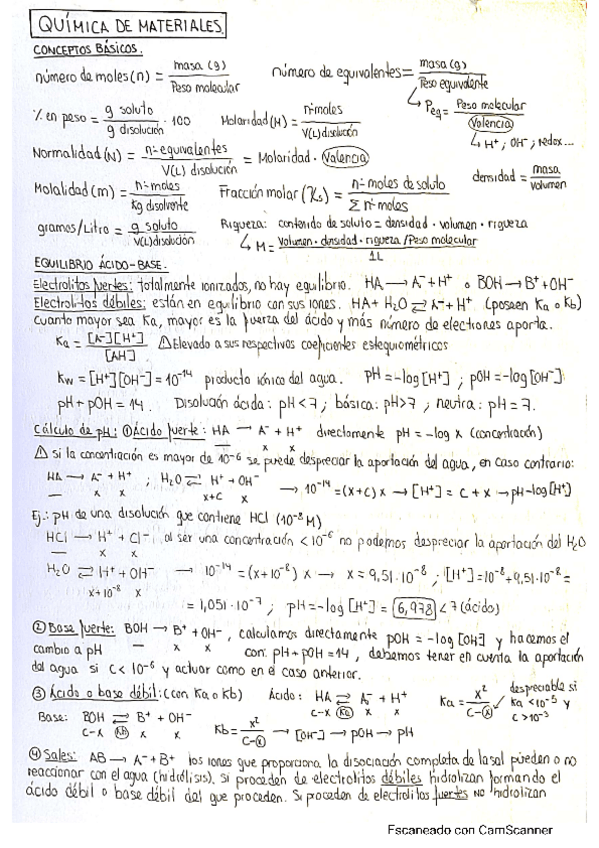 QUÍMICA DE MATERIALES.
CONCEPTOS BÁSICOS.
número de moles(n) = masa (g) / Peso molecular
número de equivalentes = masa (g) / Peso equivalente
↳ Peq = Peso molecular / Valencia
↳ H⁺; OH⁻; redox...
% en peso = g soluto / g disolución · 100
Molaridad(M) = nº moles / V(L) disolución
Normalidad (N) = nº equivalentes / V(L) disolución = Molaridad · Valencia
densidad = masa / volumen
Molalidad (m) = nº moles / Kg disolvente
Fracción molar (Xs) = nº moles de soluto / Σ nº moles
gramos/Litro = g soluto / V(L) disolución
Riqueza: contenido de soluto = densidad · volumen · riqueza
↳ M = Volumen · densidad · riqueza / Peso molecular / 1L
EQUILIBRIO ÁCIDO-BASE.
Electrolitos fuertes: totalmente ionizados, no hay equilibrio. HA → A⁻ + H⁺ o BOH → B⁺ + OH⁻
Electrolitos débiles: están en equilibrio con sus iones. HA + H₂O ⇌ A⁻ + H⁺ (poseen Ka o Kb)
Cuanto mayor sea Ka, mayor es la fuerza del ácido y más número de electrones aporta.
Ka = [A⁻][H⁺] / [AH] ⚠ Elevado a sus respectivos coeficientes estequiométricos
Kw = [H⁺][OH⁻] = 10⁻¹⁴ producto iónico del agua. pH = -log[H⁺] ; pOH = -log[OH⁻]
pH + pOH = 14. Disolución ácida: pH < 7 ; básica: pH > 7 ; neutra: pH = 7.
Cálculo de pH: ① Ácido fuerte: HA → A⁻ + H⁺ directamente pH = -log x (concentración)
— x x
⚠ si la concentración es mayor de 10⁻⁶ se puede despreciar la aportación del agua, en caso contrario:
HA → A⁻ + H⁺ ; H₂O ⇌ H⁺ + OH⁻ → 10⁻¹⁴ = (x+c) x → [H⁺] = c + x → pH -log[H⁺]
— x x x+c x
Ej.: pH de una disolución que contiene HCl (10⁻⁸ M)
HCl → H⁺ + Cl⁻, al ser una concentración < 10⁻⁶ no podemos despreciar la aportación del H₂O
— x x
H₂O ⇌ H⁺ + OH⁻ → 10⁻¹⁴ = (x + 10⁻⁸) x → x = 9,51·10⁻⁸ ; [H⁺] = 10⁻⁸ + 9,51·10⁻⁸ =
x+10⁻⁸ x
= 1,051·10⁻⁷ ; pH = -log [H⁺] = 6,978 < 7 (ácido)
② Base fuerte: BOH → B⁺ + OH⁻, calculamos directamente pOH = -log [OH] y hacemos el
— x x
cambio a pH con: pH + pOH = 14, debemos tener en cuenta la aportación
del agua si C < 10⁻⁶ y actuar como en el caso anterior.
③ Ácido o base débil: (con Ka o Kb) Ácido: HA ⇌ A⁻ + H⁺ Ka = x² / C-x despreciable si Ka < 10⁻⁵ y C > 10⁻³
C-x Ka x x
Base: BOH ⇌ B⁺ + OH⁻ Kb = x² / C-x → [OH⁻] → pOH → pH
C-x Kb x x
④ Sales: AB → A⁻ + B⁺ los iones que proporciona la disociación completa de la sal pueden o no
reaccionar con el agua (hidrólisis), si proceden de electrolitos débiles hidrolizan formando el
ácido débil o base débil del que proceden. Si proceden de electrolitos fuertes NO hidrolizan
Escaneado con CamScanner